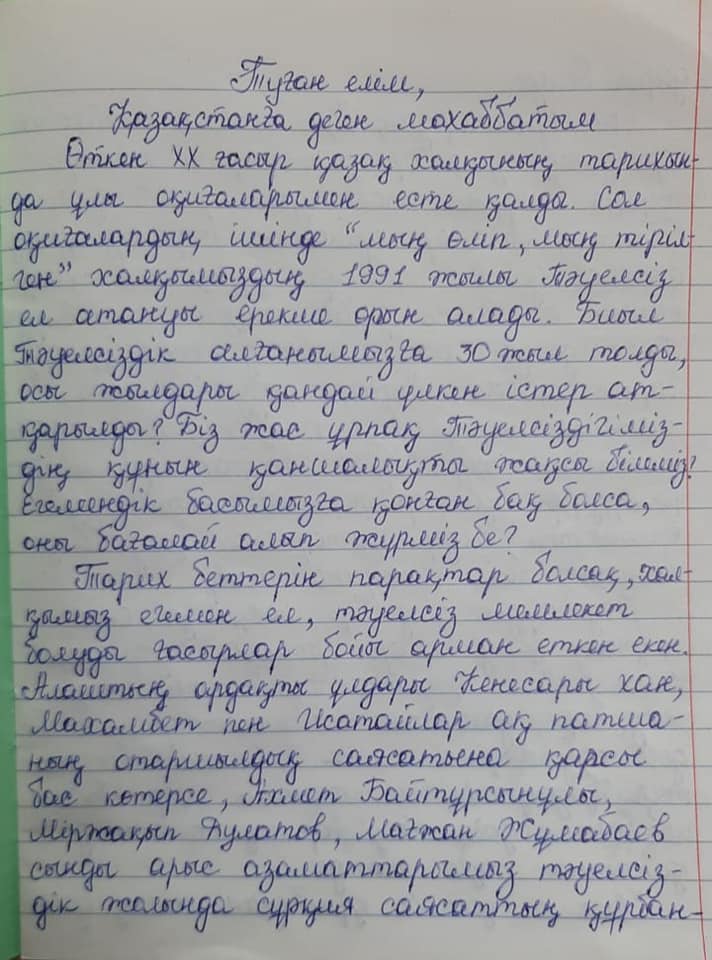 Туған елім,
Қазақстанға деген махаббатым
Өткен XX ғасыр қазақ халқының тарихын-
да ұлы оқиғаларымен есте қалды. Сол
оқиғалардың ішінде "мың өліп, мың тіріл-
ген" халқымыздың 1991 жылы Тәуелсіз
ел атануы ерекше орын алады. Биыл
Тәуелсіздік алғанымызға 30 жыл толды,
осы жылдары қандай үлкен істер ат-
қарылды? Біз жас ұрпақ Тәуелсіздігіміз-
дің құнын қаншалықты жақсы білеміз?
Егемендік басымызға қонған бақ болса,
оны бағалай алып жүрміз бе?
Тарих беттерін парақтар болсақ, хал-
қымыз егемен ел, тәуелсіз мемлекет
болуды ғасырлар бойы арман еткен екен.
Алаштың ардақты ұлдары Кенесары хан,
Махамбет пен Исатайлар ақ патша-
ның отаршылдық саясатына қарсы
бас көтерсе, Ахмет Байтұрсынұлы,
Міржақып Дулатов, Мағжан Жұмабаев
сынды арыс азаматтарымыз тәуелсіз-
дік жолында сұрқия саясаттың құрбан-